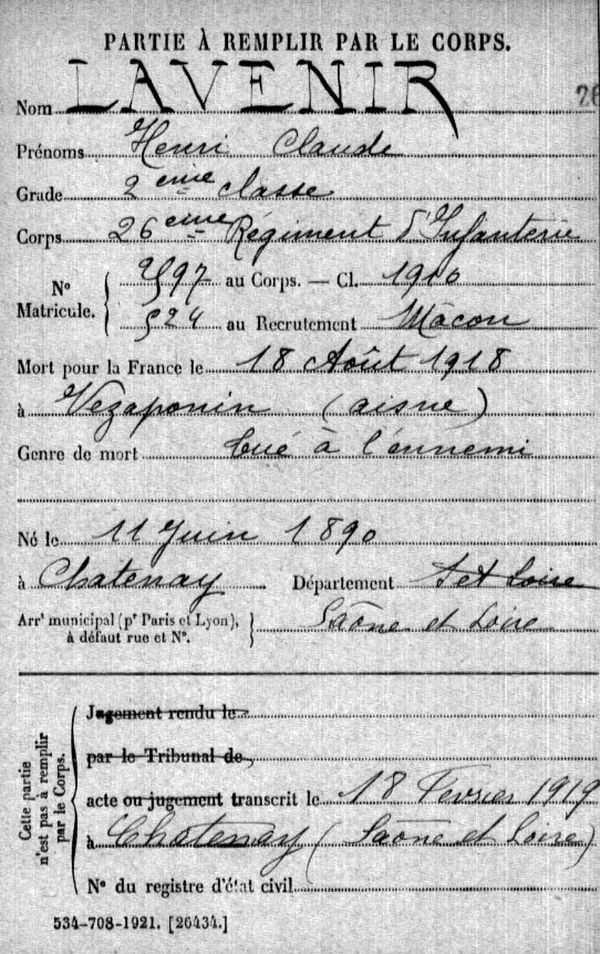 PARTIE À REMPLIR PAR LE CORPS.
Nom LAVENIR
26
Prénoms Henri Claude
Grade 2 eme classe
Corps 26 eme Régiment d'Infanterie
N° Matricule. 
597 au Corps. — Cl. 1910
524 au Recrutement Mâcon
Mort pour la France le 18 Août 1918
à Vezaponin (aisne)
Genre de mort tué à l'ennemi
Né le 11 Juin 1890
à Chatenay Département S et Loire
Arrt municipal (pr Paris et Lyon), à défaut rue et N°. Saône et Loire
Cette partie n'est pas à remplir par le Corps.
Jugement rendu le
par le Tribunal de
acte ou jugement transcrit le 18 Fevrier 1919
à Chatenay (Saône et Loire)
N° du registre d'état civil
534-708-1921. [26434.]